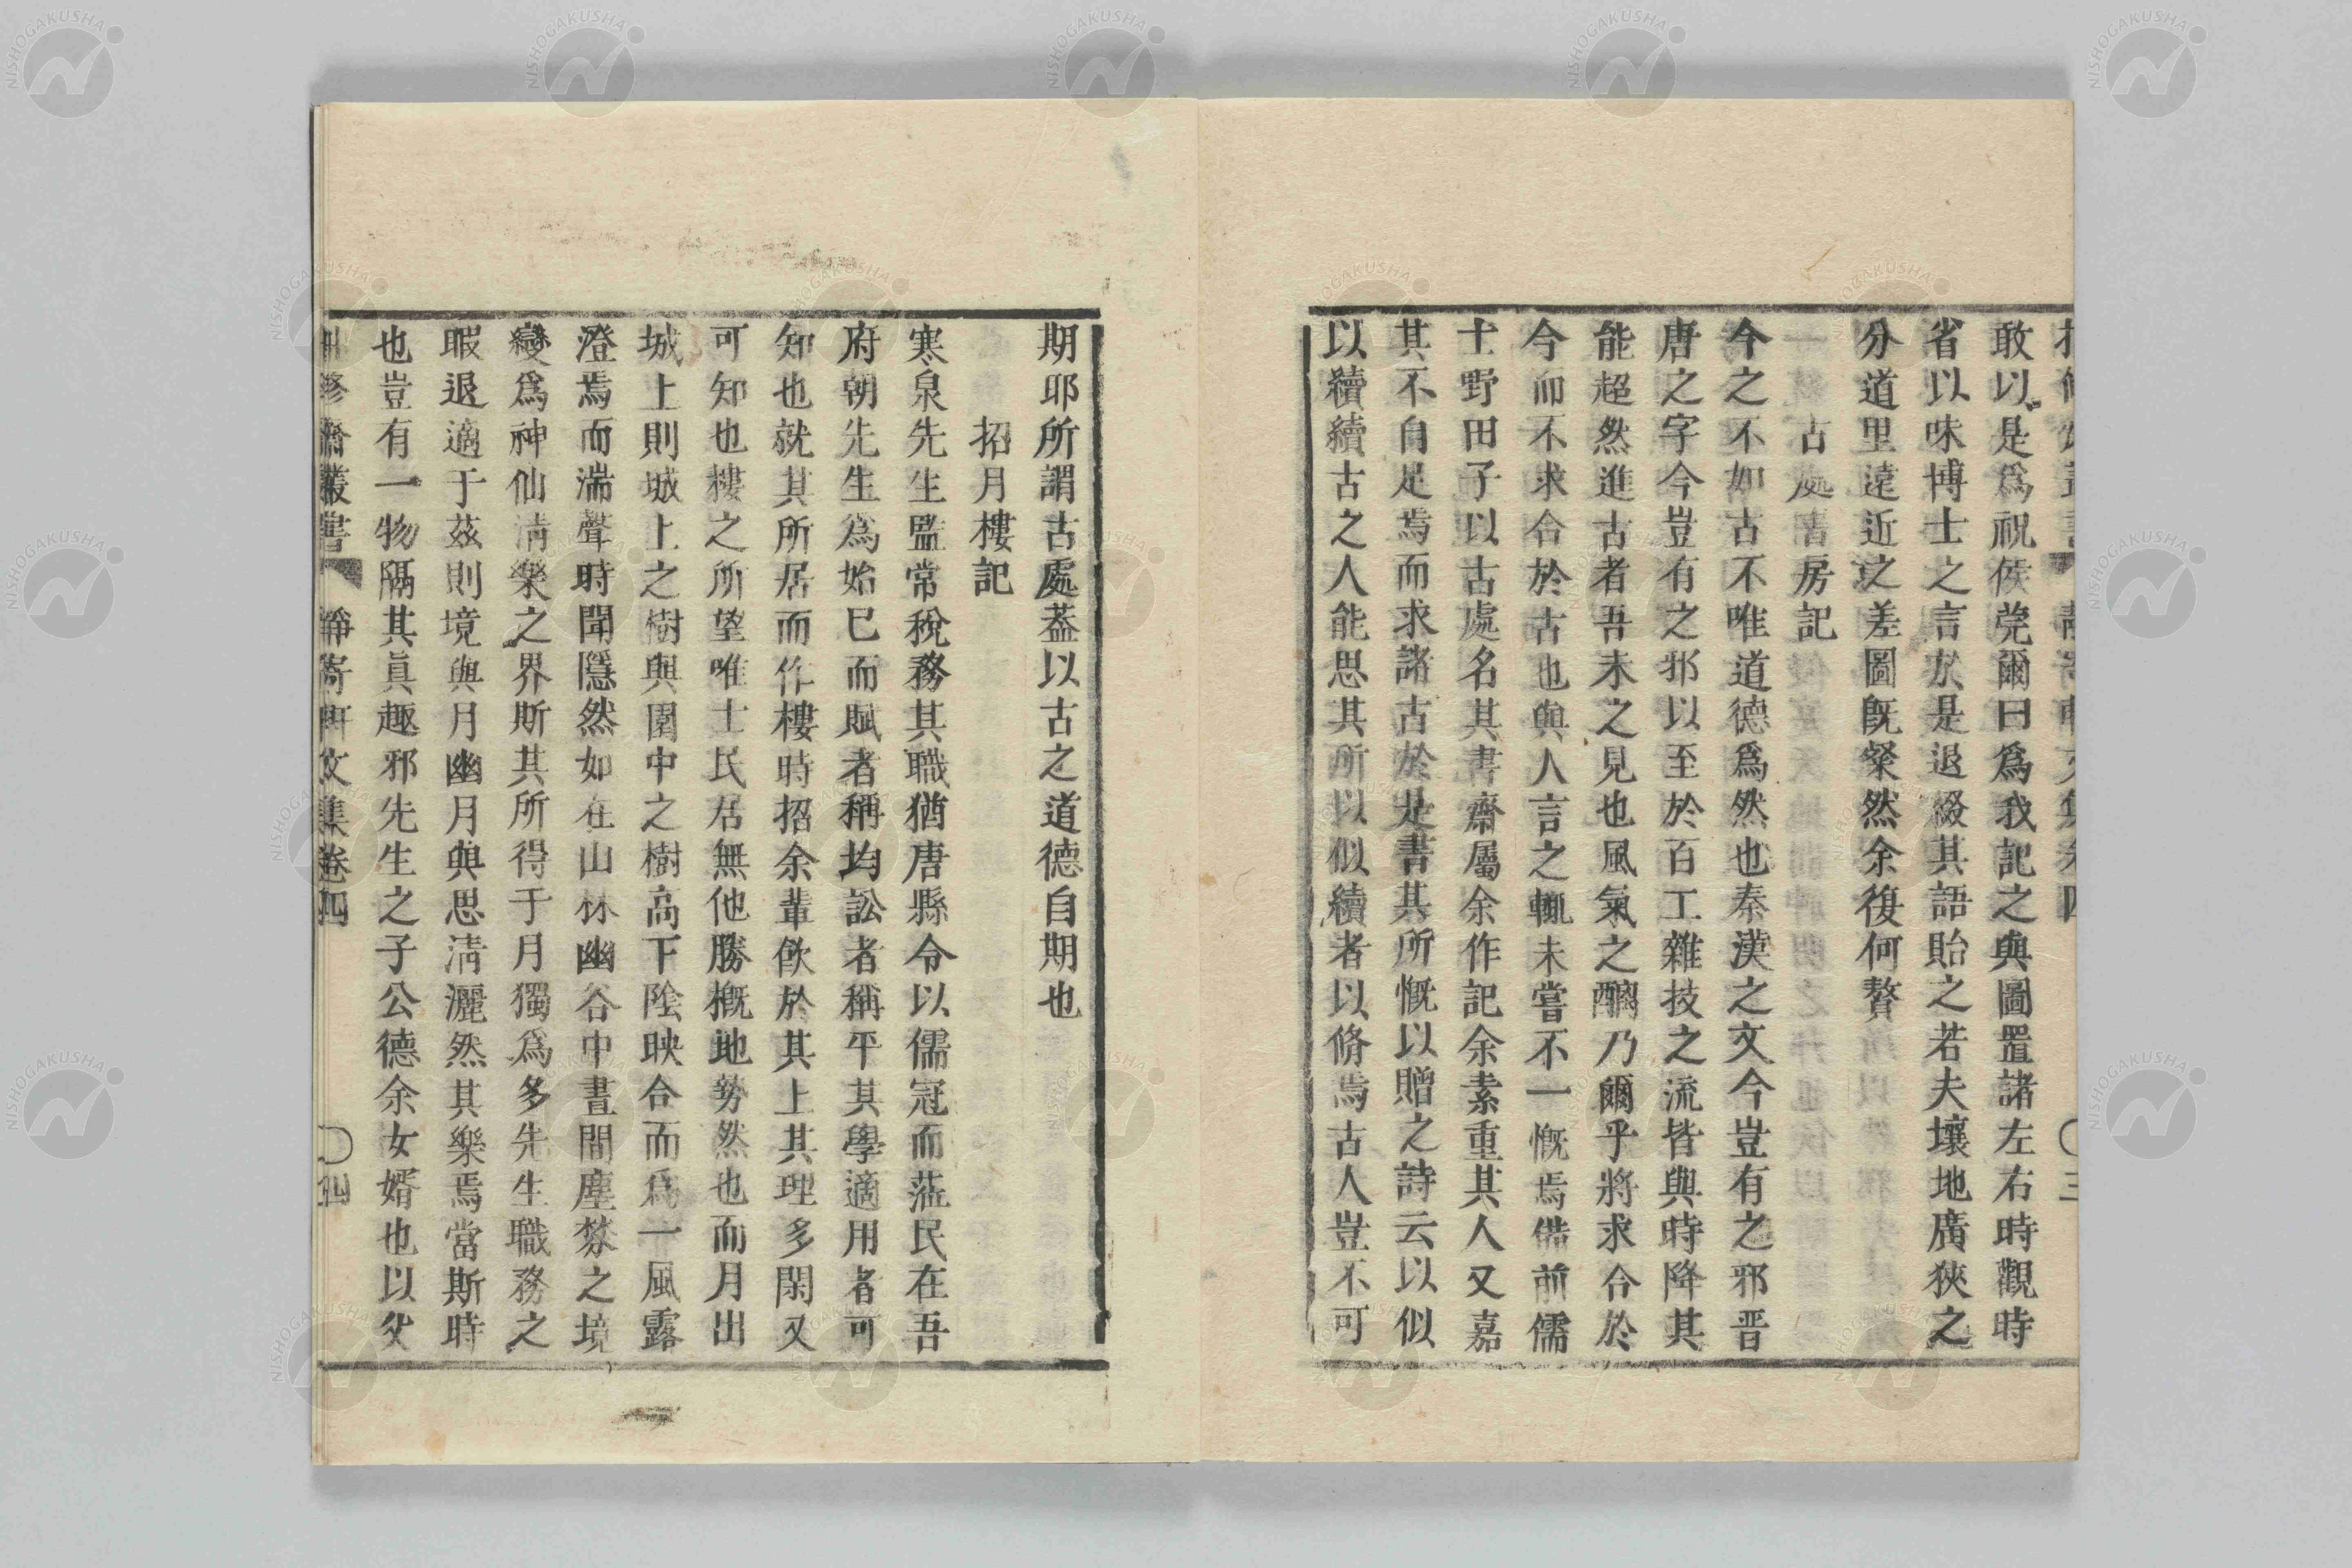 敢以是爲祝侯莞爾曰爲我記之與圖置諸左右時觀時
省以味博士之言於是退綴其語貽之若夫壤地廣狹之
分道里遠近之差圖既粲然余復何贅
古處書房記
今之不如古不唯道德爲然也秦漢之文今豈有之邪晋
唐之字今豈有之邪以至於百工雜技之流皆與時降其
能超然進古者吾未之見也風氣之醨乃爾乎將求合於
今而不求合於古也與人言之輒未嘗不一慨焉備前儒
士野田子以古處名其書齋屬余作記余素重其人又嘉
其不自足焉而求諸古於是書其所慨以贈之詩云以似
以續續古之人能思其所以似續者以脩焉古人豈不可
期耶所謂古處蓋以古之道德自期也
招月樓記
寒泉先生監常稅務其職猶唐縣令以儒冠而蒞民在吾
府朝先生爲始已而賦者稱均訟者稱平其學適用者可
知也就其所居而作樓時招余輩飲於其上其理多閑又
可知也樓之所望唯士民居無他勝概地勢然也而月出
城上則城上之樹與園中之樹高下陰映合而爲一風露
澄焉而湍聲時聞隱然如在山林幽谷中晝間塵棼之境
變爲神仙淸樂之界斯其所得于月獨爲多先生職務之
暇退適于茲則境與月幽月與思淸灑然其樂焉當斯時
也豈有一物隔其眞趣邪先生之子公德余女婿也以父
修齋叢書 靜寄軒文集卷四 〇四
NISHOGAKUSHA